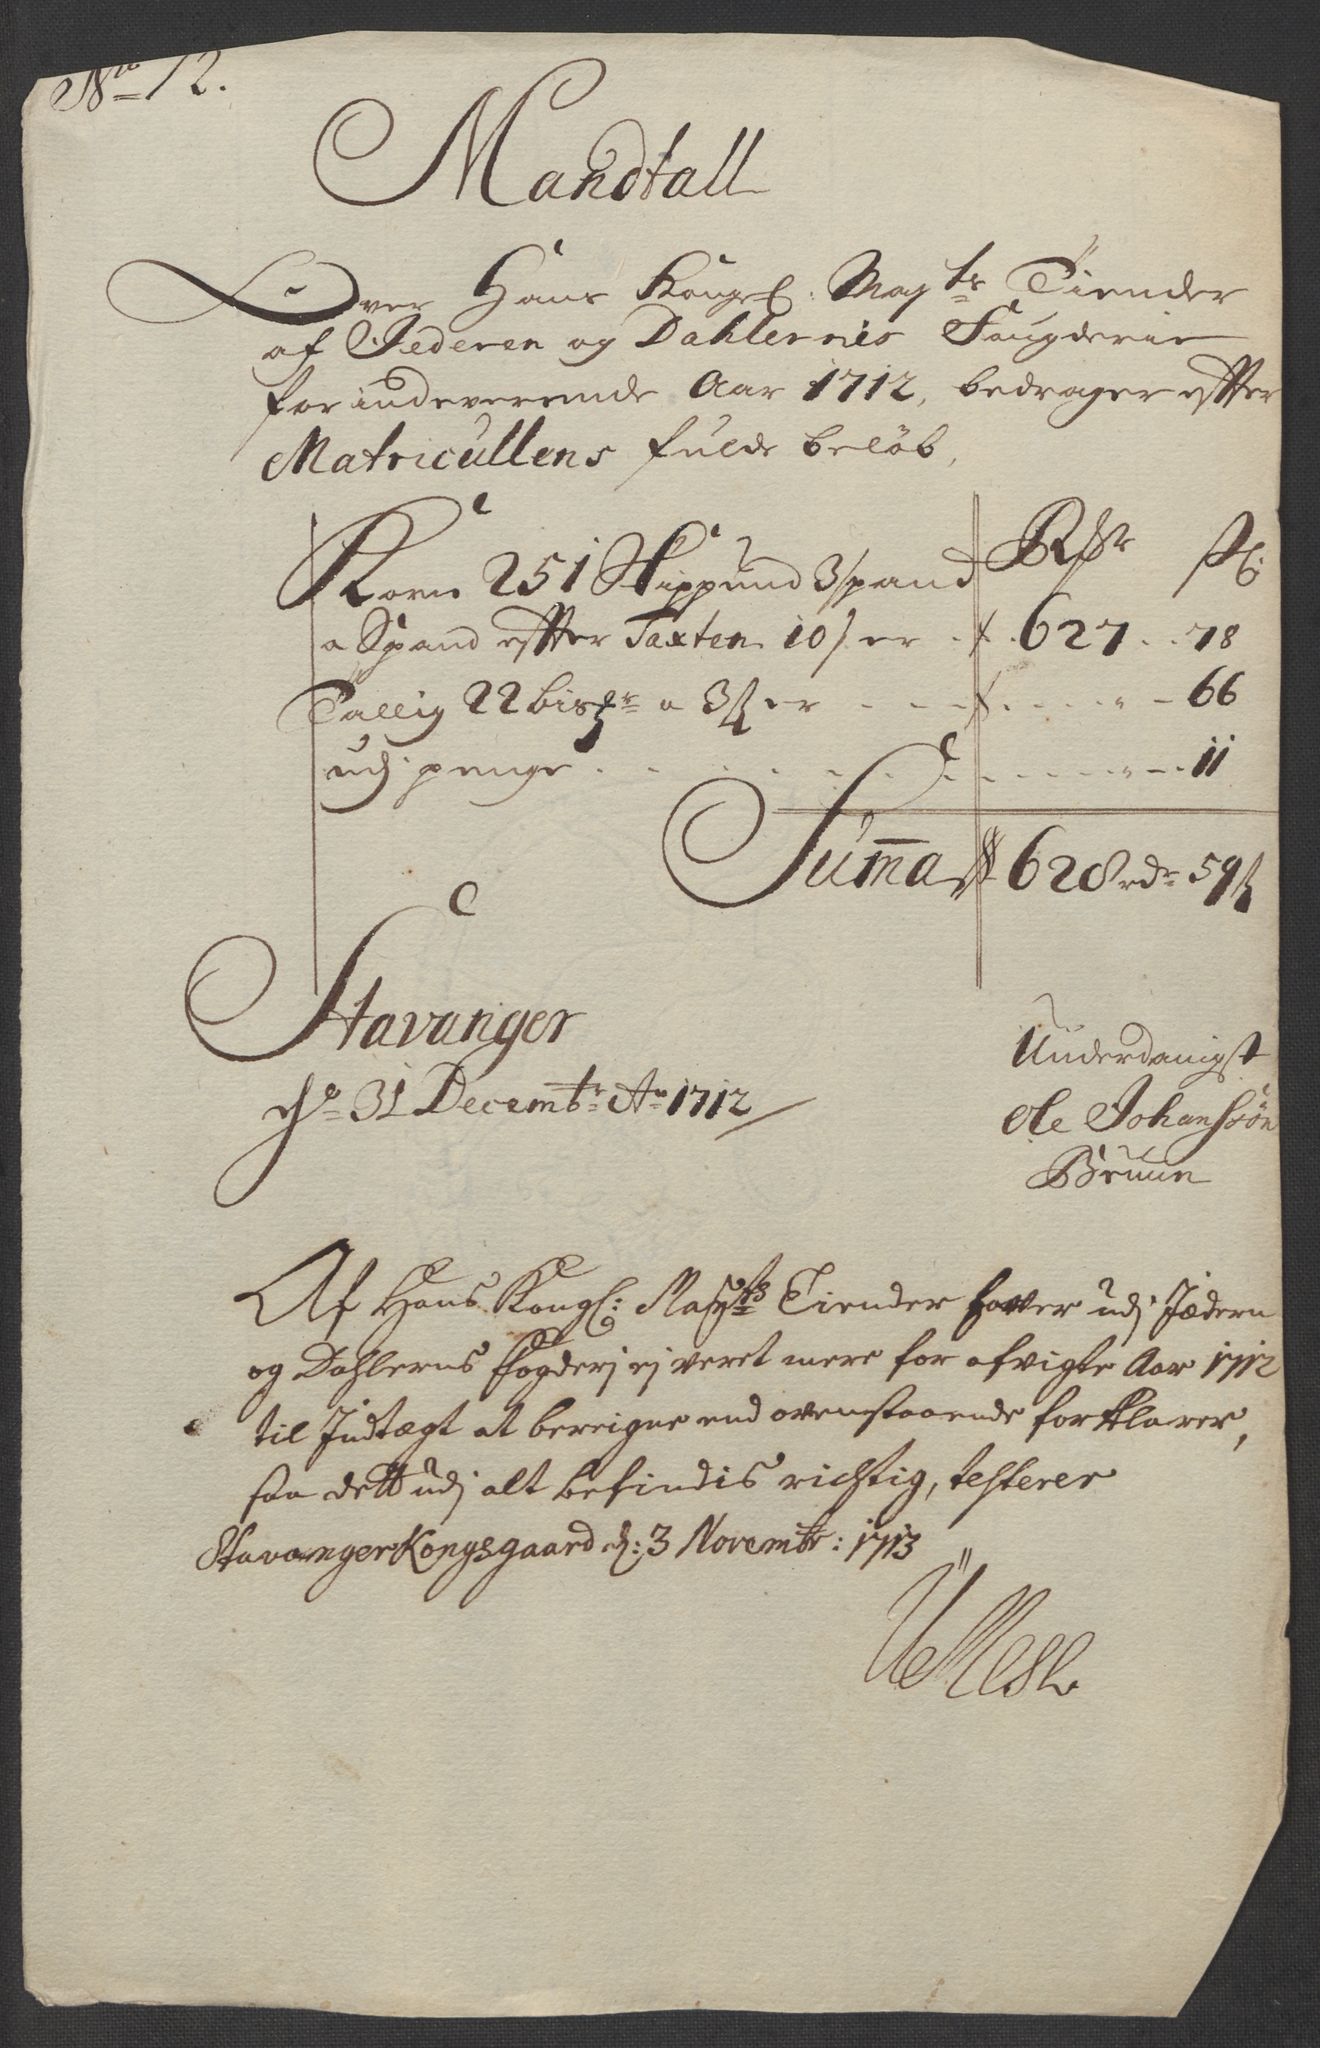 No 12.
Mandtall
Over Hans Kongl: Mayts Tiender
af Jederen og Dahlernis Faugderie
for indeverende Aar 1712, bedrager effter
Matricullens fulde beløb,
Rdr ß:
Korn 251 Skippund 3 spand
a Spand effter Taxten 10 ß er 627 78
Tallig 22 bismr a 3 ß er 66
udj penge 11
Summa 628 rdr 59 ß
Stavanger
de 31 Decembr Ao 1712
Underdanigst
Ole Johanssøn
Bruun
Af Hans Kongl: Maysts Tiender hafver udj Jædern
og Dahlerns Fogderj ej veret mere for afvigte Aar 1712
til Indtægt at bereigne end ovenstaaende forklarer,
saa dett udj alt befindis richtig, testerer
Stavanger Kongsgaard d: 3 Novembr: 1713